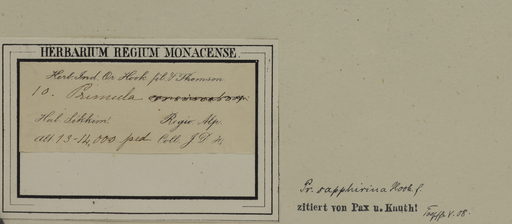 HERBARIUM REGIUM MONACENSE.
Herb. Ind. Or. Hook. fil. & Thomson
10. Primula
Hab. Sikkim Regio Alp.
alt. 13-14,000 ped. Coll. J. D. H.
Pr. sapphirina Hook f.
zitiert von Pax u. Knuth!
V. 08.